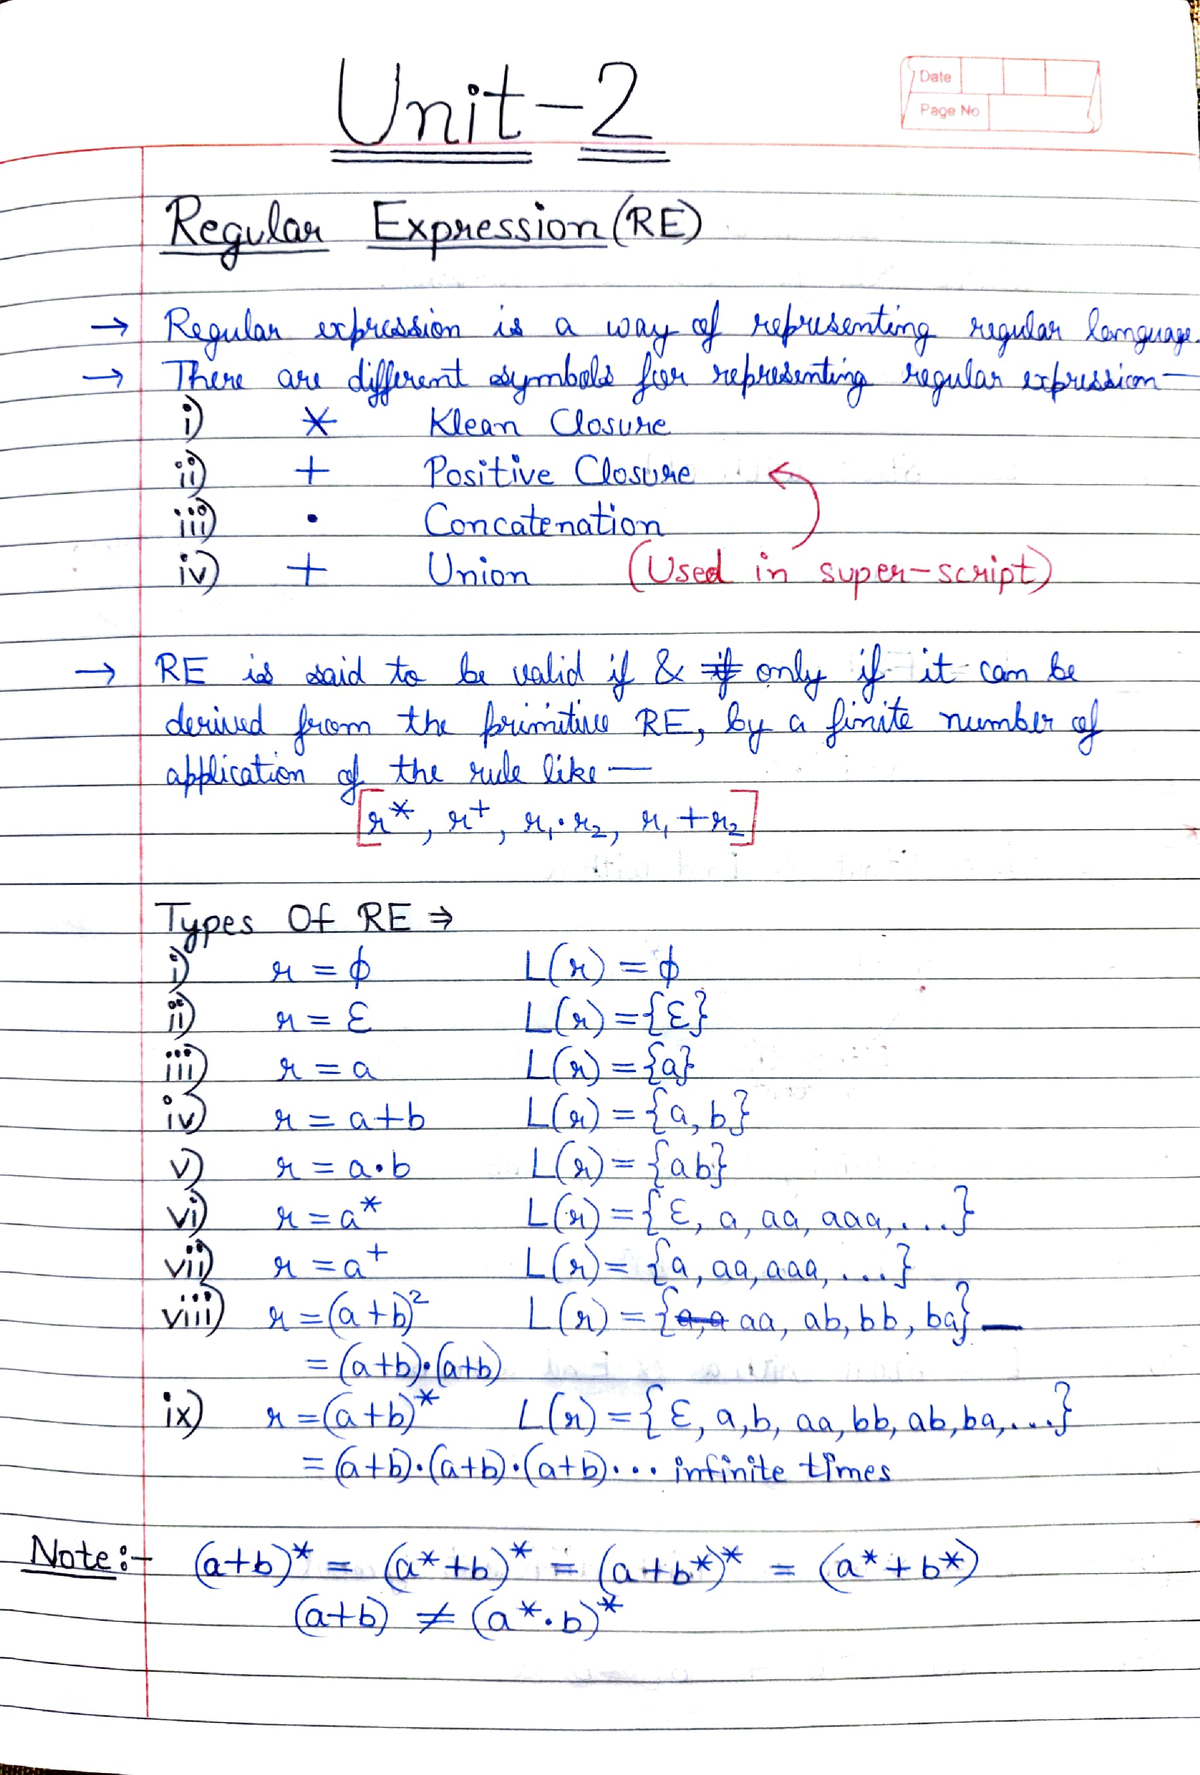 Unit-2
Date
Page No
Regular Expression (RE)
→ Regular expression is a way of representing regular language.
→ There are different symbols for representing regular expression—
i) * Klean Closure
ii) + Positive Closure
iii) • Concatenation
iv) + Union (Used in super-script)
→ RE is said to be valid if & if only if it can be
derived from the primitive RE, by a finite number of
application of the rule like —
[r*, r⁺, r₁•r₂, r₁+r₂]
Types Of RE ⇒
i) r = ϕ L(r) = ϕ
ii) r = ε L(r) = {ε}
iii) r = a L(r) = {a}
iv) r = a+b L(r) = {a, b}
v) r = a•b L(r) = {ab}
vi) r = a* L(r) = {ε, a, aa, aaa, ...}
vii) r = a⁺ L(r) = {a, aa, aaa, ...}
viii) r = (a+b)² L(r) = {a, a aa, ab, bb, ba}
= (a+b)•(a+b)
ix) r = (a+b)* L(r) = {ε, a, b, aa, bb, ab, ba, ...}
= (a+b)•(a+b)•(a+b)•... infinite times
Note:- (a+b)* = (a*+b)* = (a+b*)* = (a*+b*)
(a+b) ≠ (a*•b)*